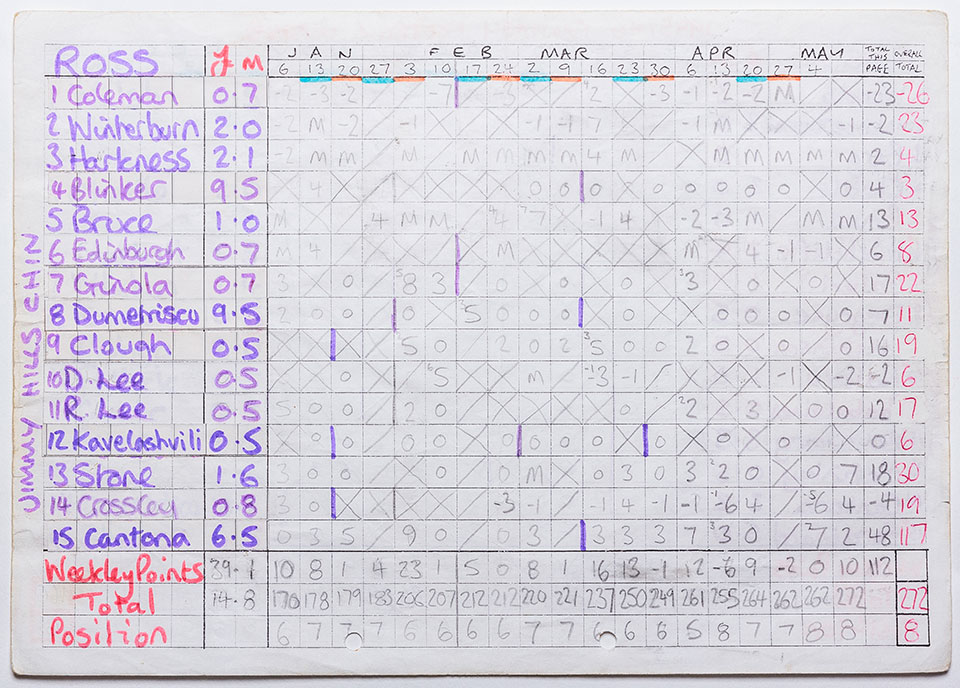 J A N F E B MAR APR MAY TOTAL THIS PAGE OVERALL TOTAL
ROSS £ M 6 13 20 27 3 10 17 24 2 9 16 23 30 6 13 20 27 4
1 Coleman 0.7 -2 -3 -2 -7 -3 2 -3 -1 -2 -2 M -23 -26
2 Winterburn 2.0 -2 M -2 -1 -1 -1 7 -1 M -1 -2 23
3 Harkness 2.1 -2 M M M M M M M 4 M M M M M M M 2 4
4 Blinker 9.5 4 0 0 0 0 0 0 0 0 0 4 3
5 Bruce 1.0 M 4 M M 7 -1 4 -2 -3 M M M 13 13
6 Edinburgh 0.7 M 4 M M 4 -1 -1 6 8
7 Ginola 0.7 3 0 8 3 0 0 0 0 3 0 0 17 22
8 Dumetriscu 9.5 2 0 0 0 5 0 0 0 0 0 0 0 0 0 0 7 11
9 Clough 0.5 5 0 0 2 5 0 0 2 0 0 0 16 19
10 D. Lee 0.5 0 5 M -3 -1 -1 -2 -2 6
11 R. Lee 0.5 5 0 2 0 0 2 3 0 0 12 17
12 Kavelashvili 0.5 0 0 0 0 0 0 0 0 0 0 0 0 6
13 Stone 1.6 3 0 0 0 0 0 0 M 0 3 0 3 2 0 0 7 18 30
14 Crossley 0.8 3 0 -3 -1 -1 4 -1 -1 -6 4 -6 4 -4 19
15 Cantona 6.5 0 3 5 9 0 3 3 3 3 7 3 0 7 2 48 117
Weekley Points 39.1 10 8 1 4 23 1 5 0 8 1 16 13 -1 12 -6 9 -2 0 10 112
Total 14.8 170 178 179 183 206 207 212 212 220 221 237 250 249 261 255 264 262 262 272 272
Position 6 7 7 7 6 6 6 6 7 7 6 6 6 5 8 7 7 8 8 8
JIMMY HILLS CHIN